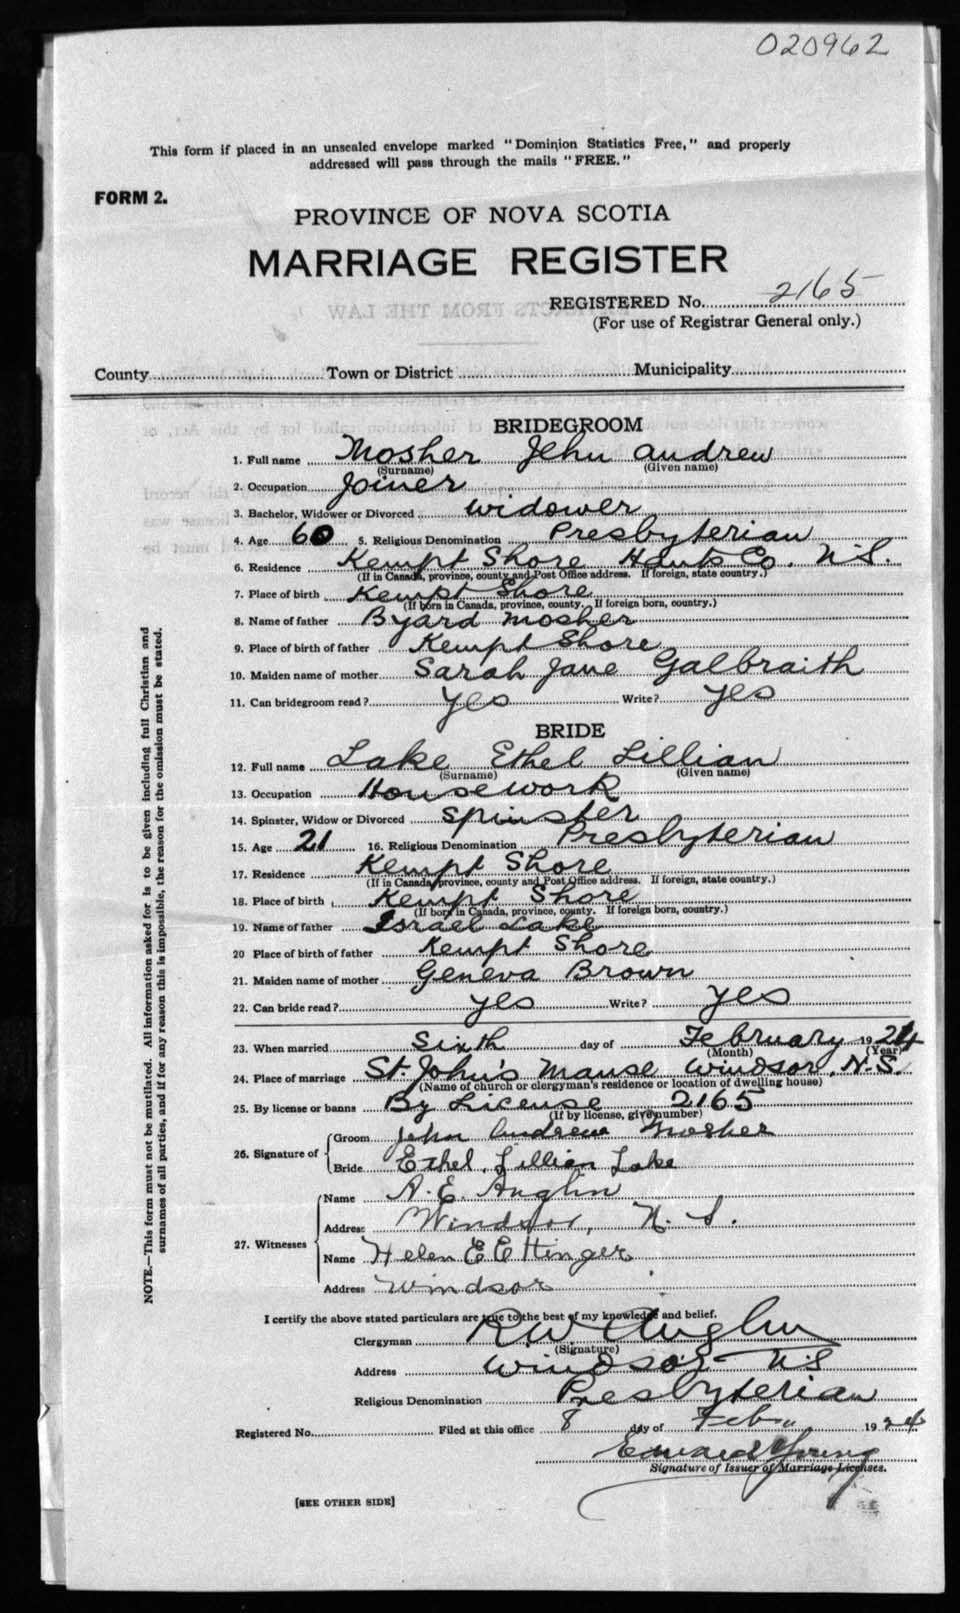 020962
This form if placed in an unsealed envelope marked "Dominion Statistics Free," and properly
addressed will pass through the mails "FREE."
FORM 2.
PROVINCE OF NOVA SCOTIA
MARRIAGE REGISTER
REGISTERED No. 2165
(For use of Registrar General only.)
County Town or District Municipality
BRIDEGROOM
1. Full name Mosher Jehu Andrew
(Surname) (Given name)
2. Occupation Joiner
3. Bachelor, Widower or Divorced Widower
4. Age 60 5. Religious Denomination Presbyterian
6. Residence Kempt Shore Hants Co. N.S.
(If in Canada, province, county and Post Office address. If foreign, state country.)
7. Place of birth Kempt Shore
(If born in Canada, province, county. If foreign born, country.)
8. Name of father Byard Mosher
9. Place of birth of father Kempt Shore
10. Maiden name of mother Sarah Jane Galbraith
11. Can bridegroom read? Yes Write? Yes
BRIDE
12. Full name Lake Ethel Lillian
(Surname) (Given name)
13. Occupation Housework
14. Spinster, Widow or Divorced Spinster
15. Age 21 16. Religious Denomination Presbyterian
17. Residence Kempt Shore
(If in Canada, province, county and Post Office address. If foreign, state country.)
18. Place of birth Kempt Shore
(If born in Canada, province, county. If foreign born, country.)
19. Name of father Israel Lake
20 Place of birth of father Kempt Shore
21. Maiden name of mother Geneva Brown
22. Can bride read? Yes Write? Yes
23. When married Sixth day of February 1924
(Month) (Year)
24. Place of marriage St. John's Manse Windsor, N.S.
(Name of church or clergyman's residence or location of dwelling house)
25. By license or banns By License 2165
(If by license, give number)
26. Signature of Groom Jehu Andrew Mosher
Bride Ethel Lillian Lake
27. Witnesses Name A. E. Anglin
Address Windsor, N. S.
Name Helen E Ettinger
Address Windsor
I certify the above stated particulars are true to the best of my knowledge and belief.
Clergyman R W Anglin
(Signature)
Address Windsor N S
Religious Denomination Presbyterian
Registered No. Filed at this office 8 day of Feb 1924
Edward Young
Signature of Issuer of Marriage Licenses.
[SEE OTHER SIDE]
NOTE.—This form must not be mutilated. All information asked for is to be given including full Christian and
surnames of all parties, and if for any reason this is impossible, the reason for the omission must be stated.